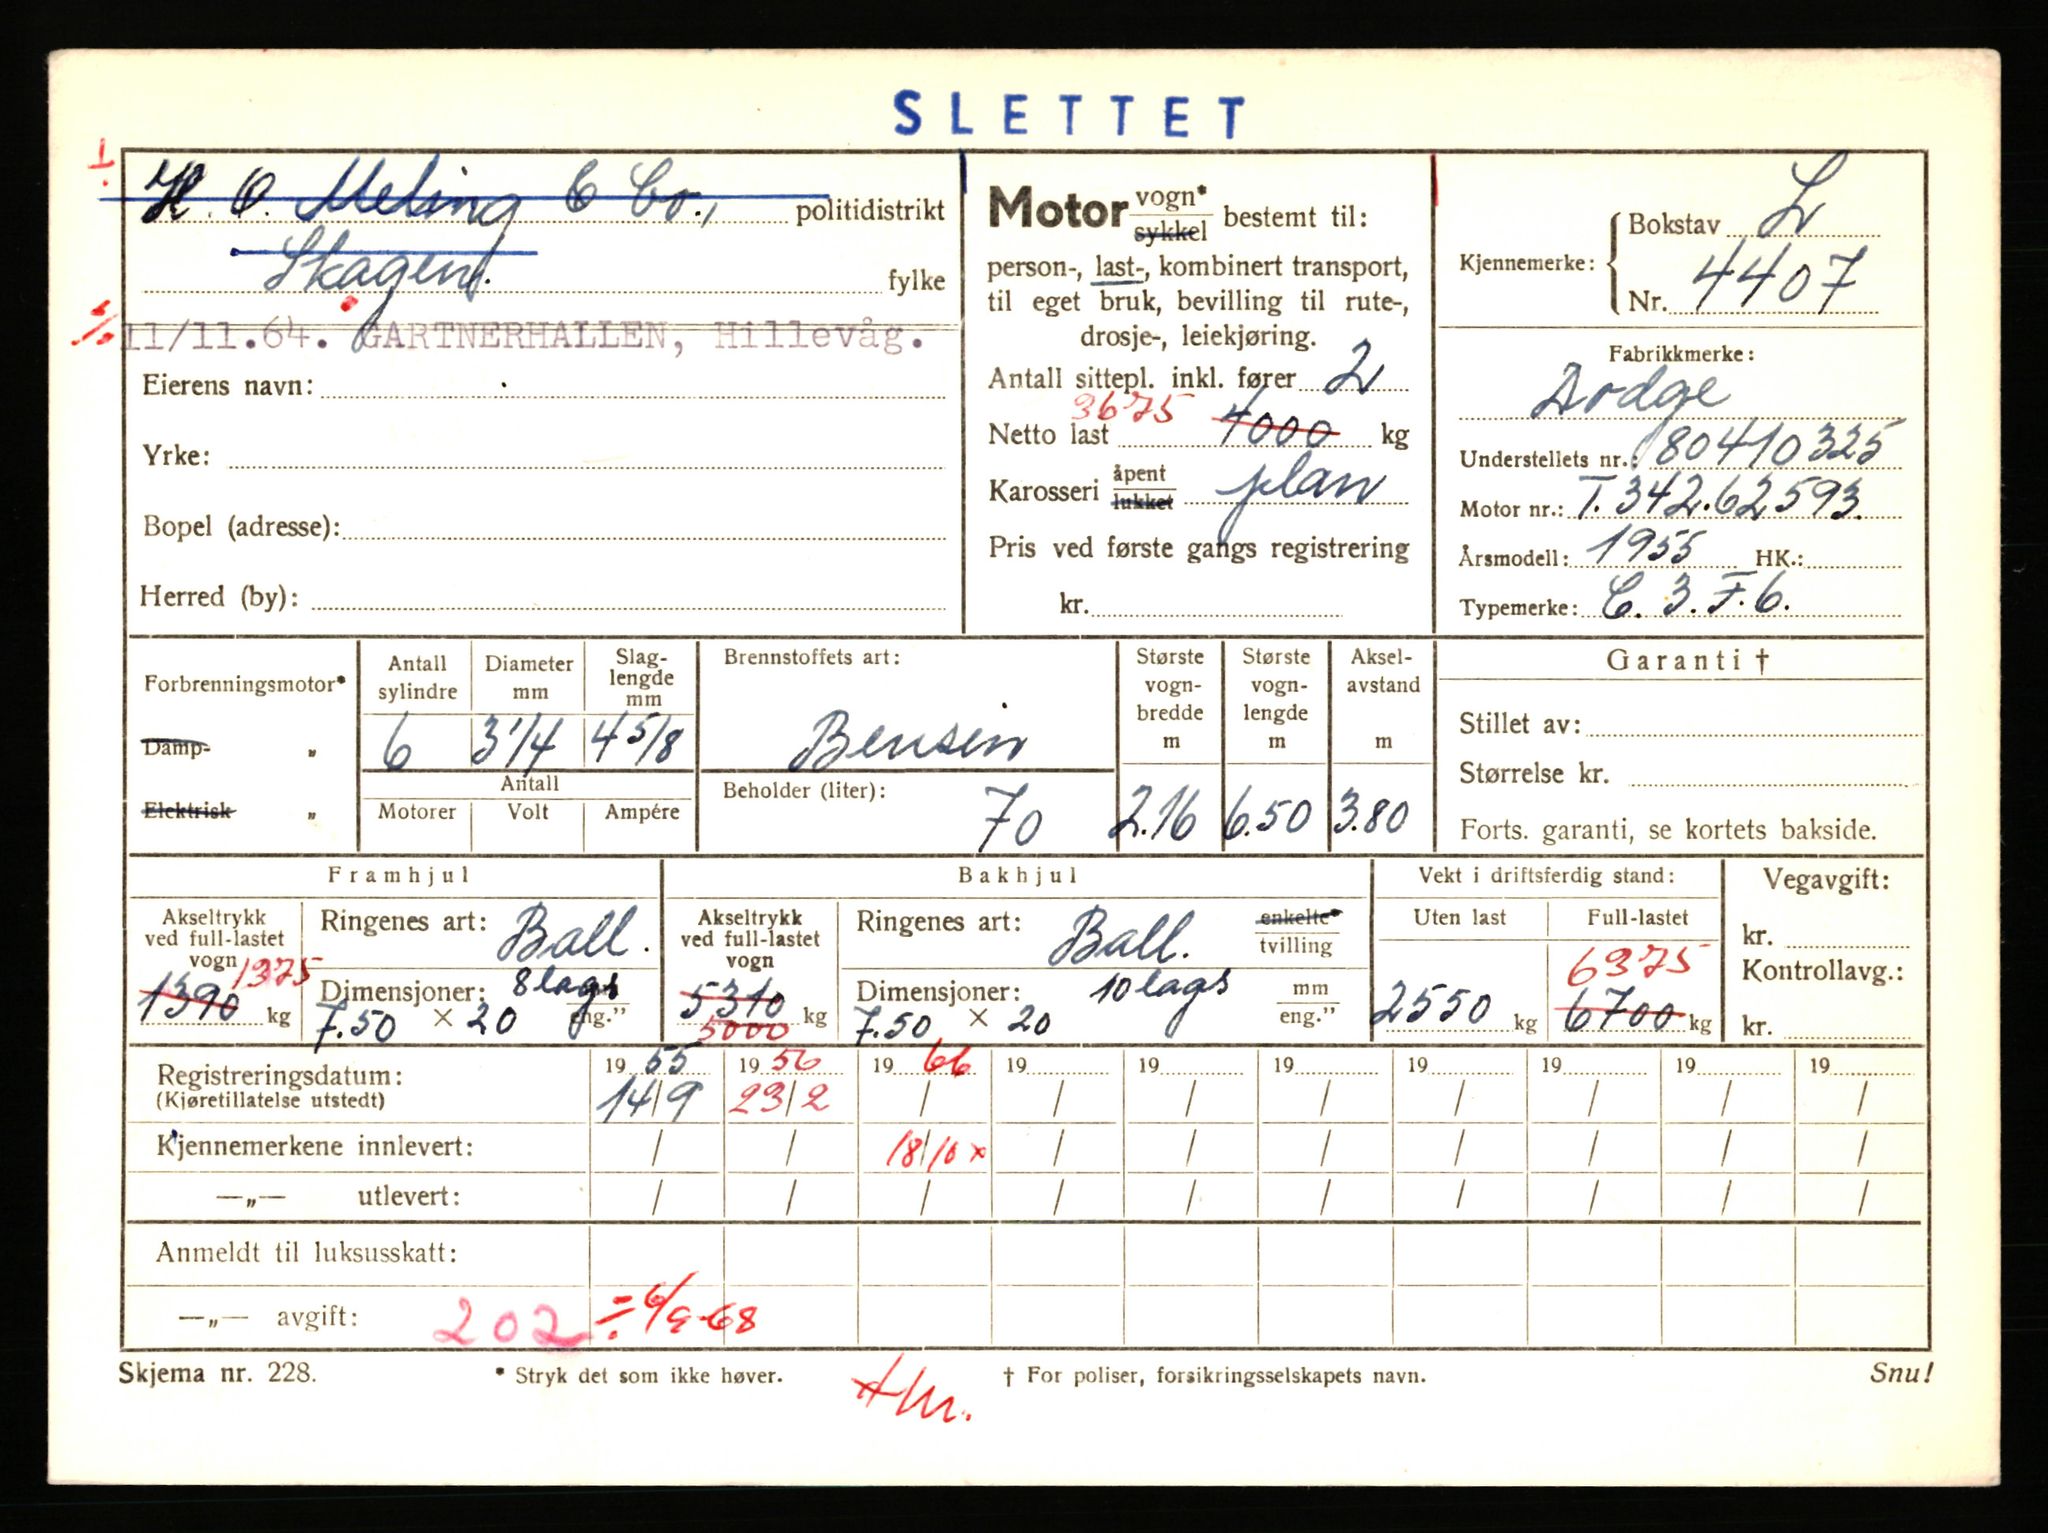 SLETTET
H. O. Meling & Co., politidistrikt
Skagen. fylke
11/11.64. GARTNERHALLEN, Hillevåg.
Eierens navn:
Yrke:
Bopel (adresse):
Herred (by):
Motor vogn* sykkel bestemt til:
person-, last-, kombinert transport,
til eget bruk, bevilling til rute-,
drosje-, leiekjøring.
Antall sittepl. inkl. fører 2
Netto last 3675 4000 kg
Karosseri åpent lukket plan
Pris ved første gangs registrering
kr.
Kjennemerke: Bokstav L
Nr. 4407
Fabrikkmerke:
Dodge
Understellets nr.: 80410325
Motor nr.: T. 342.62593.
Årsmodell: 1955 HK.:
Typemerke: C. 3. F. 6.
Forbrenningsmotor*
Damp- „
Elektrisk „
Antall sylindre 6
Diameter mm 3 1/4
Slag-lengde mm 4 5/8
Antall
Motorer Volt Ampére
Brennstoffets art:
Bensin
Beholder (liter): 70
Største vogn-bredde m 2.16
Største vogn-lengde m 6.50
Aksel-avstand m 3.80
Garanti †
Stillet av:
Størrelse kr.
Forts. garanti, se kortets bakside.
Framhjul
Akseltrykk ved full-lastet vogn 1375
1390 kg
Ringenes art: Ball.
Dimensjoner: 8 lags
7.50 × 20 eng."
Bakhjul
Akseltrykk ved full-lastet vogn
5310 kg
5000
Ringenes art: Ball. enkelte* tvilling
Dimensjoner: 10 lags mm
7.50 × 20 eng."
Vekt i driftsferdig stand:
Uten last Full-lastet
2550 kg 6375 6700 kg
Vegavgift:
kr.
Kontrollavg.:
kr.
Registreringsdatum: 19 55 19 56 19 66 19 19 19 19 19 19 19
(Kjøretillatelse utstedt) 14/9 23/2 / / / / / / / /
Kjennemerkene innlevert: / / 18/10 x / / / / / / /
—„— utlevert: / / / / / / / / / /
Anmeldt til luksusskatt:
—„— avgift: 202 ÷ 6/9-68
Skjema nr. 228. * Stryk det som ikke høver. † For poliser, forsikringsselskapets navn. Snu!